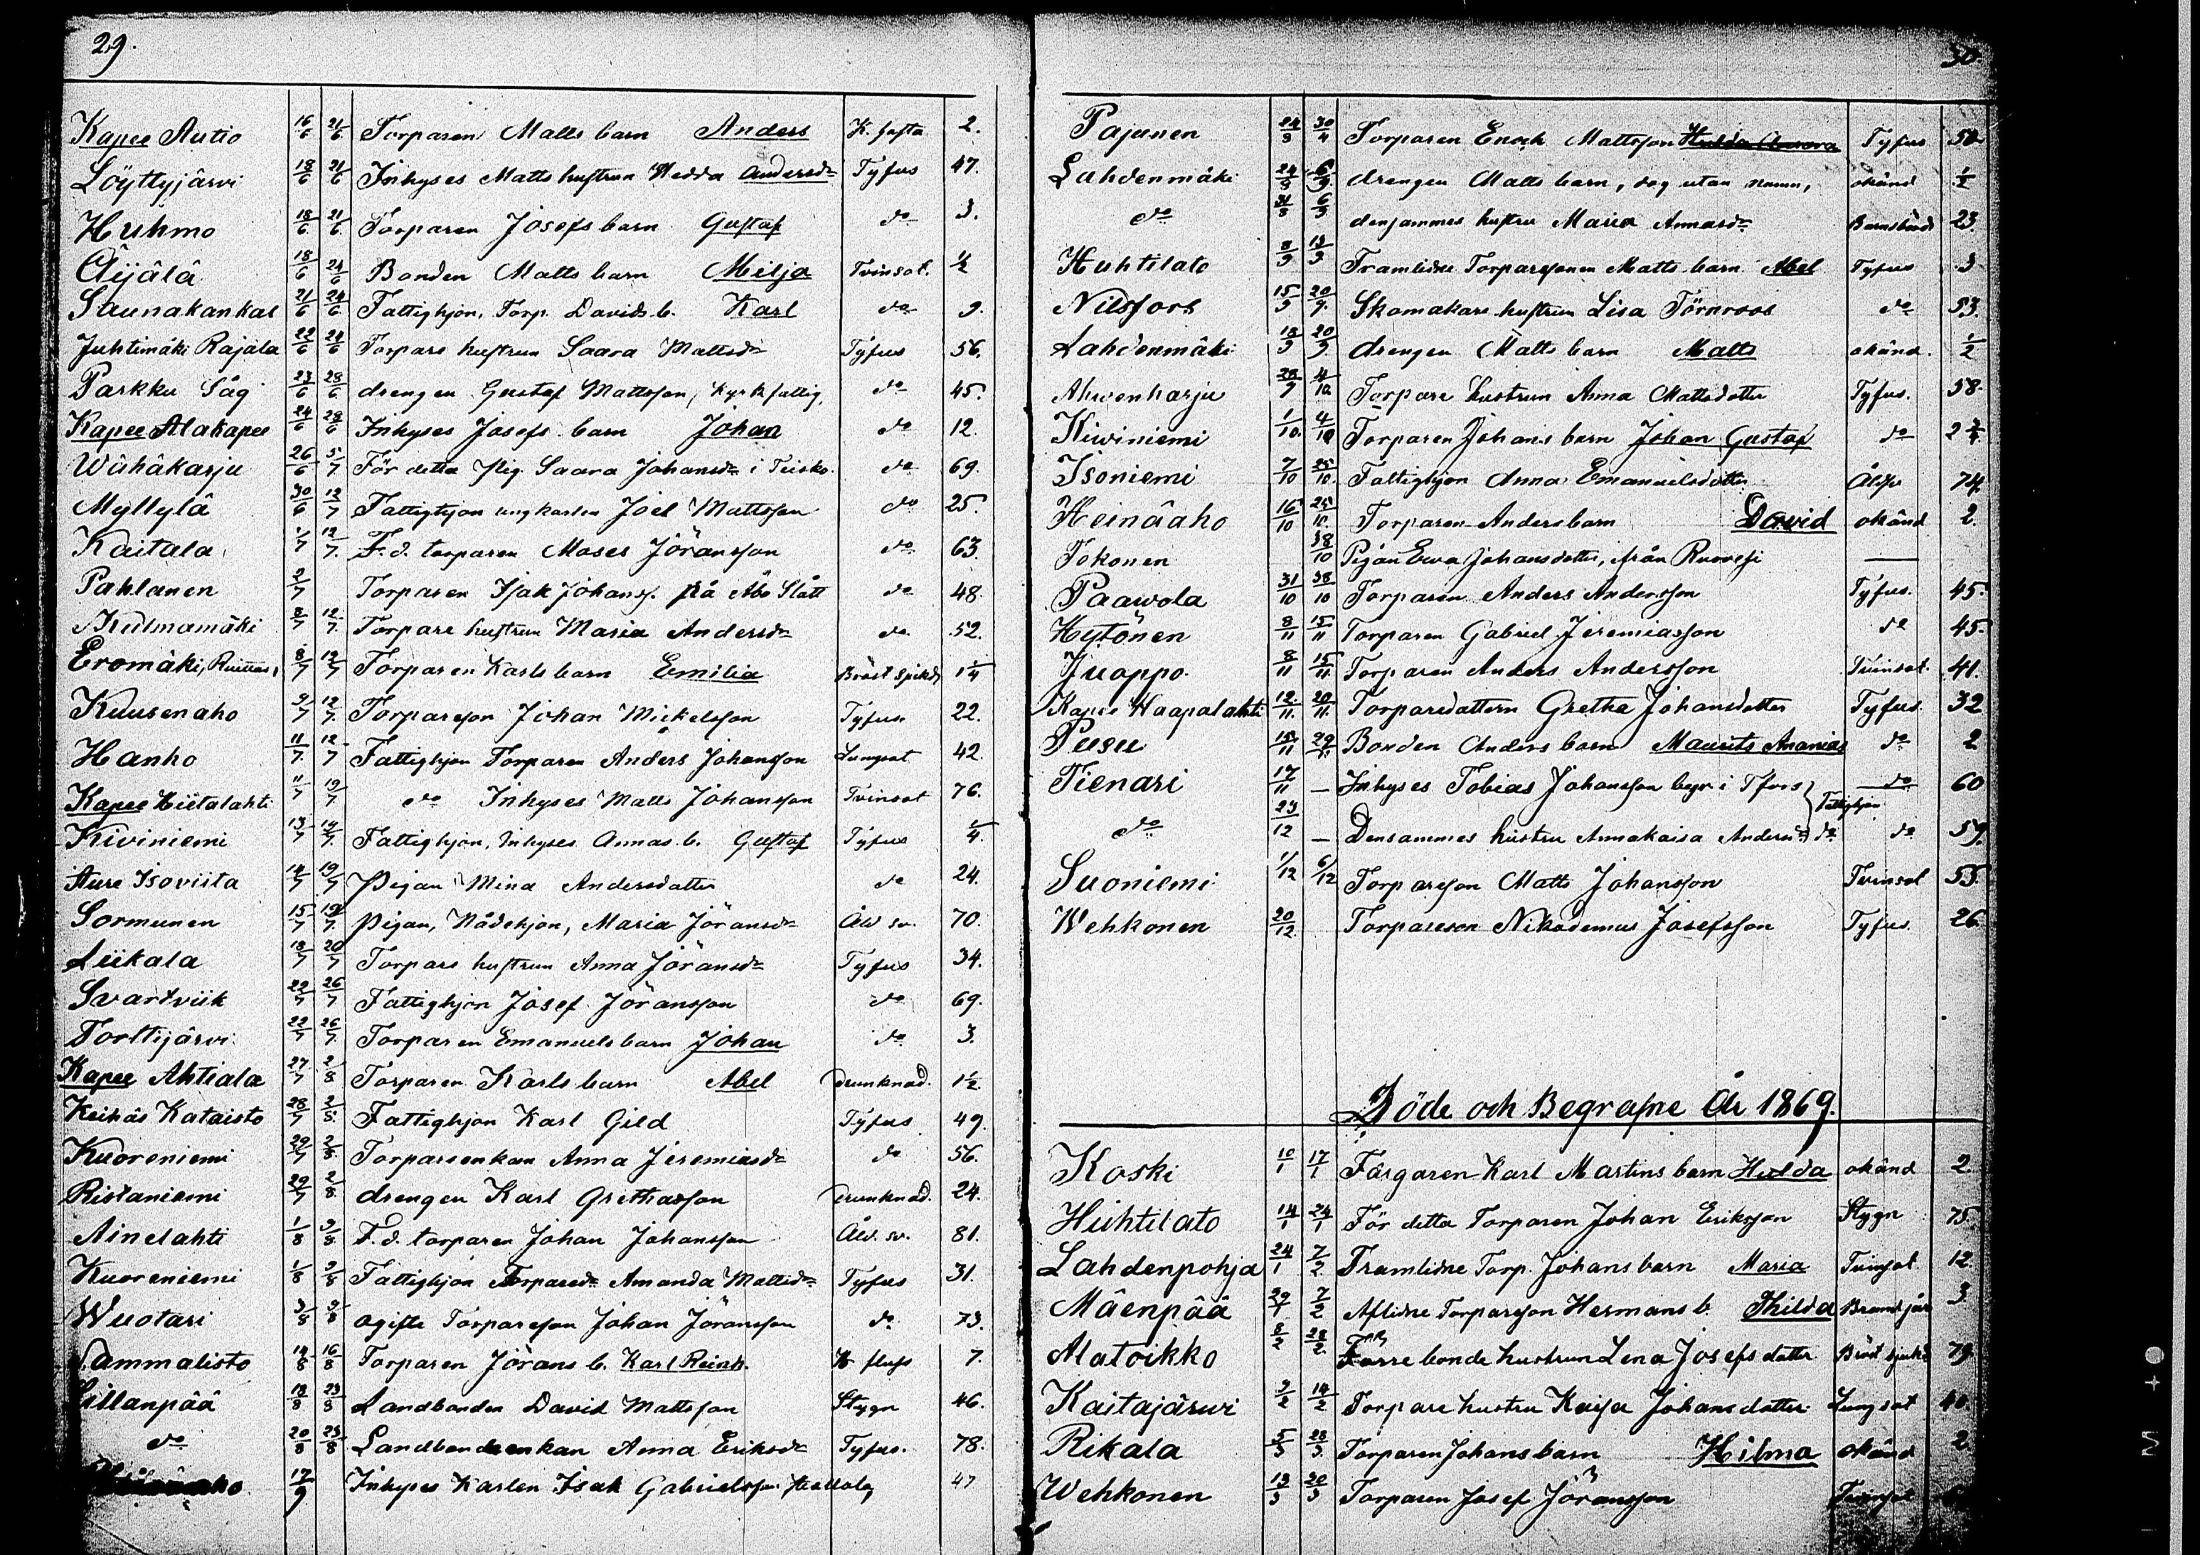 29.
Kapee Autio 16/6 21/6 Torparen Matts barn Anders 2.
Löyttyjärvi 18/6 21/6 Inhyses Matts hustrun Hedda Andersd:r Tyfus 47.
Huhmo 18/6 21/6 Torparen Josefs barn Gustaf do 3.
Äijälä 18/6 24/6 Bonden Matts barn Milja Tvinsot. ½
Saunakankas 21/6 24/6 Fattighjon, Torp. Davids b. Karl do 9.
Juhtimäki Rajala 22/6 24/6 Torpare hustrun Saara Mattsd:r Tyfus 56.
Parkku Såg 23/6 28/6 drengen Gustaf Mattsson, kyrkfattig, do 45.
Kapee Alakapee 24/6 28/6 Inhyses Josefs barn Johan do 12.
Wähäkarju 26/6 5/7 För detta Saara Johansd:r i Teisko. do 69.
Myllylä 30/6 12/7 Fattighjon ungkarlen Joel Mattsson do 25.
Kaitala 1/7 12/7. F. d. torparen Moses Jöransson do 63.
Pahlanen 2/7 Torparen Isak Johanss. frå Åbo Slått do 48.
Kulmamäki 8/7 12/7. Torpare hustrun Maria Andersd:r do 52.
Eromäki, 8/7 12/7 Torparen Karls barn Emilia Bröst 1¼
Kuusenaho 9/7 12/7. Torpareson Johan Mickelsson Tyfus 22.
Hanho 11/7. 12/7 Fattighjon Torparen Anders Johansson Lungsot 42.
Kapee Hiitalahti 11/7 19/7 do Inhyses Matts Johansson Tvinsot 76.
Kiviniemi 13/7 19/7. Fattighjon, Inhyses Annas b. Gustaf Tyfus ¼.
Aure Isoviita 14/7 19/7 Pigan Mina Andersdotter do 24.
Sormunen 15/7 19/7. Pigan, Nådehjon, Maria Jöransd:r Åld sv. 70.
Liikala 18/7 20/7 Torpare hustrun Anna Jöransd:r Tyfus 34.
Svartviik 22/7 26/7 Fattighjon Josef Jöransson do 69.
Torttijärvi 22/7 26/7. Torparen Emanuels barn Johan do 3.
Kapee Ahtiala 27/7 2/8 Torparen Karls barn Abel Drunknad. 1½.
Keihäs Kataisto 28/7 2/8. Fattighjon Karl Gild Tyfus 49.
Kuoreniemi 29/7 2/8. Torpareenkan Anna Jeremiasd:r do 56.
Ristaniemi 29/7 2/8. drengen Karl Grethasson Drunknad. 24.
Ainelahti 1/8 9/8. F. d. torparen Johan Johansson Åld. sv. 81.
Kuoreniemi 1/8 9/8 Fattighjon Torpared:r Amanda Mattsd:r Tyfus 31.
Wuotari 3/8 9/8 ogifte Torpareson Johan Jöransson do 73.
Sammalisto 14/8 16/8 Torparen Jörans b. Karl Reinh. 7.
Sillanpää 18/8 23/8 Landbonden David Mattsson Stygn 46.
do 20/8 23/8 Landbondeenkan Anna Eriksd:r Tyfus. 78.
17/9 Inhyses Karlen Isak Gabrielsson 47
30.
Pajunen 24/8 30/4 Torparen Enok Mattsson Tyfus 50
Lahdenmäki 24/8 6/9. drengen Matts barn, dog utan namn, okänd ½
do 31/8 6/9 densammes hustru Maria Annasd:r Barnsbörd 23.
Huhtilato 8/9 13/9 Framlidne Torparesonen Matts barn Abel Tyfus 3
Nilsfors 15/9 20/9. Skomakare hustrun Lisa Törnroos do 53.
Lahdenmäki 18/9 20/9 drengen Matts barn Matts okänd. ½
Ahvenharju 28/9 4/10 Torpare hustrun Anna Mattsdotter Tyfus. 58.
Kiviniemi 1/10. 4/10 Torparen Johans barn Johan Gustaf do 2¾
Isoniemi 7/10 25/10. Fattighjon Anna Emanuelsdotter 74.
Heinäaho 16/10 25/10. Torparen Anders barn David okänd 2.
Tokonen Pigan Ewa Johansdotter, ifrån Ruovesi —
Paavola 31/10 Torparen Anders Andersson Tyfus. 45.
Hytönen 8/11 15/11 Torparen Gabriel Jeremiasson do 45.
Juoppo. 8/11 15/11. Torparen Anders Andersson Tvinsot 41.
Kapee Haapalahti 12/11. 20/11. Torparedottern Gretha Johansdotter Tyfus. 32
Pusu 15/11 29/11 Bonden Anders barn Maurits Ananias do 2
Tienari 17/11 — Inhyses Tobias Johansson begr. i Tfors do 60
Fattighjon
do 23/12 — Densammes hustru Annakaisa Andersd:r do do 59.
Suoniemi 1/12 6/12 Torpareson Matts Johansson Tvinsot 55.
Wehkonen 20/12. Torpareson Nikodemus Josefsson Tyfus. 26
Döde och Begrafne År 1869.
Koski 10/1 17/1 Färgaren Karl Martins barn Hulda okänd 2
Huhtilato 14/1 24/1 För detta Torparen Johan Eriksson Stygn 75.
Lahdenpohja 24/1 7/2 Framlidne Torp. Johans barn Maria Tvinsot. 12.
Mäenpää 29/1 7/2 Aflidne Torpareson Hermans b. Thilda 3
Alatoikko 8/2 28/2. Förre bonde hustrun Lena Josefsdotter Bröst sjukd 79.
Kaitajärvi 9/2 14/2 Torpare hustru Kaisa Johansdotter Lungsot
Rikala 5/3 28/3. Torparen Johans barn Hilma okänd 2.
Wehkonen 13/3 20/3 Torparen Josef Jöransson